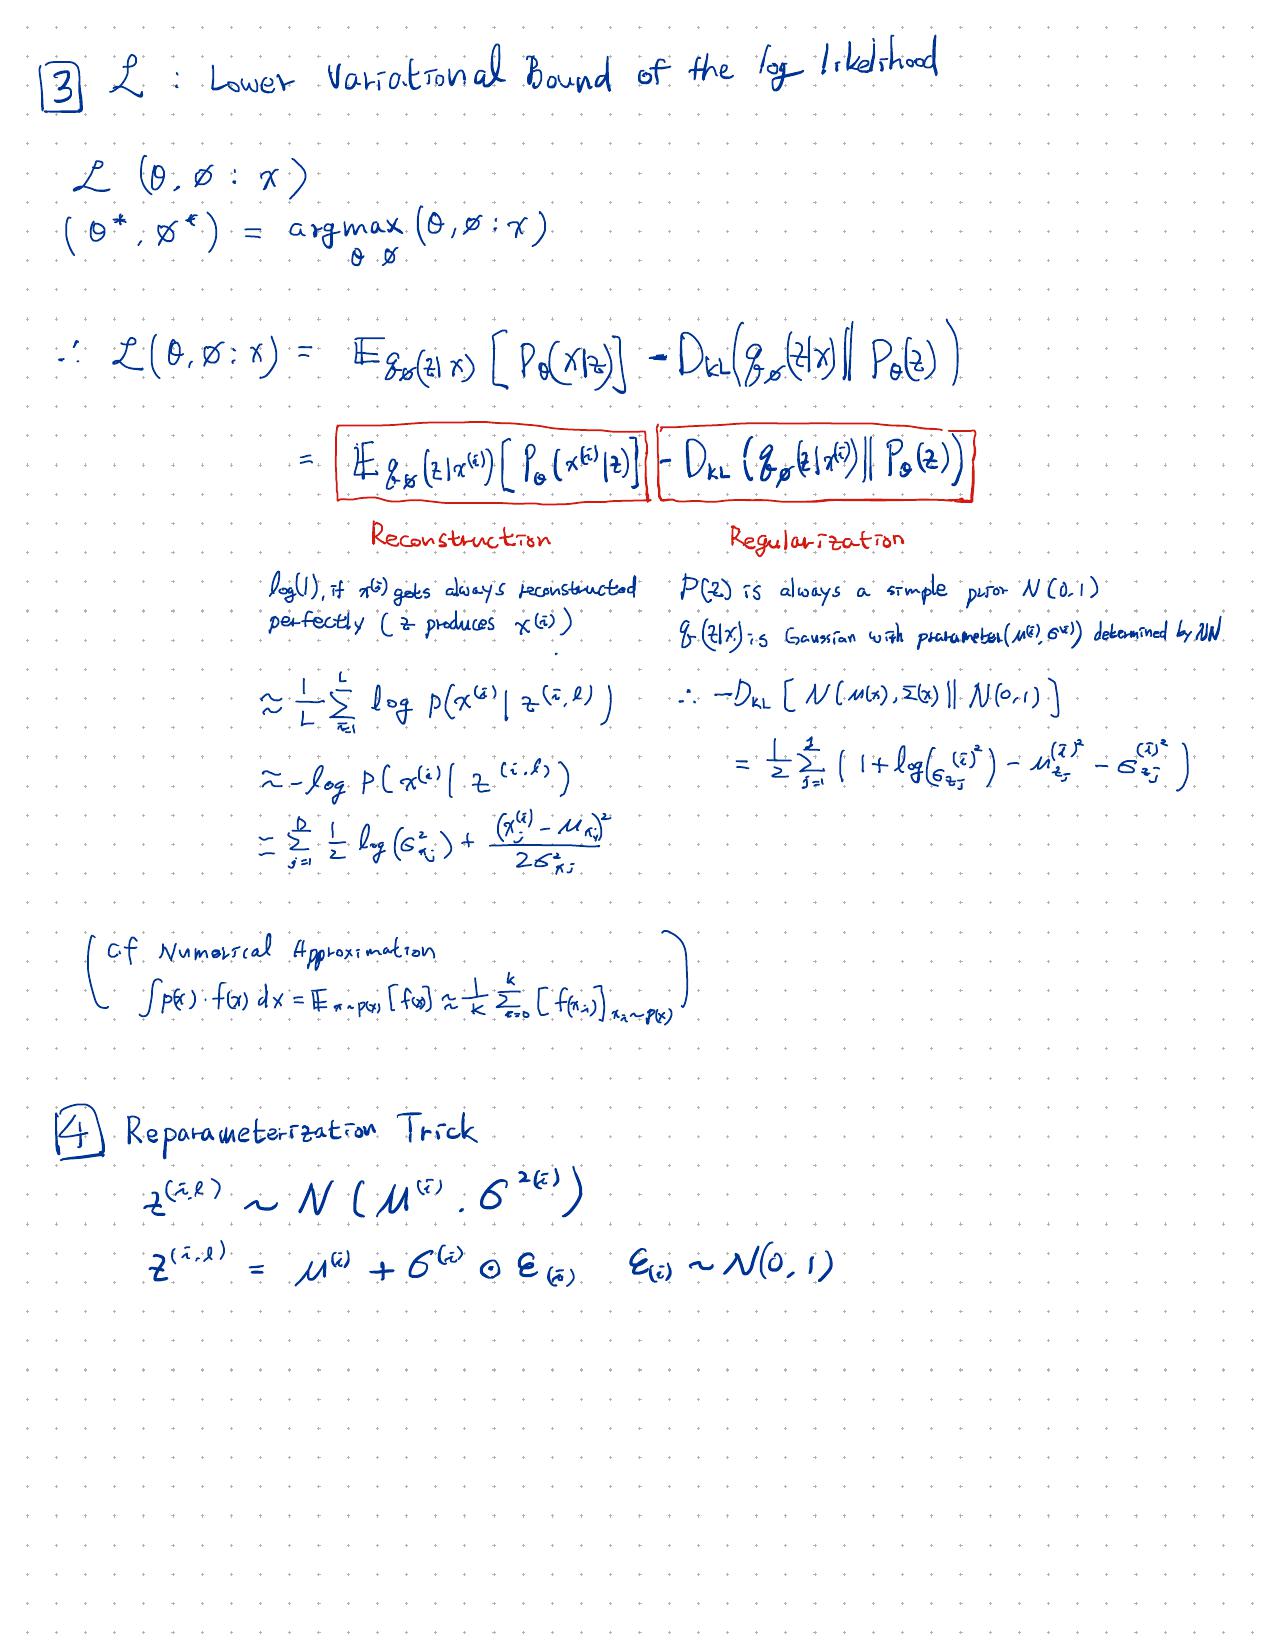 3 ℒ : Lower Variational Bound of the log likelihood
ℒ (θ, ø : x)
(θ*, ø*) = argmax (θ, ø : x)
θ ø
∴ ℒ(θ, ø : x) = 𝔼 qø(z|x) [Pθ(x|z)] - DKL(qø(z|x) || Pθ(z))
= 𝔼 qø(z|x⁽ⁱ⁾) [Pθ(x⁽ⁱ⁾|z)] - DKL(qø(z|x⁽ⁱ⁾) || Pθ(z))
Reconstruction Regularization
log(1), if x⁽ⁱ⁾ gets always reconstructed
perfectly (z produces x⁽ⁱ⁾)
≈ 1/L Σ_{i=1}^{L} log p(x⁽ⁱ⁾ | z^(i,l))
≈ - log p(x⁽ⁱ⁾ | z^(i,l))
= Σ_{j=1}^{D} 1/2 log(σ²_{xj}) + (x_j⁽ⁱ⁾ - μ_{xj})² / 2σ²_{xj}
P(z) is always a simple prior N(0,1)
q(z|x) is Gaussian with prarameter(μ⁽ⁱ⁾, σ⁽ⁱ⁾) determined by NN
∴ -DKL [N(μ(x), Σ(x) || N(0,1)]
= 1/2 Σ_{j=1}^{J} (1 + log(σ_{zj}^{(i)²}) - μ_{zj}^{(i)²} - σ_{zj}^{(i)²})
(cf Numerical Approximation
∫p(x)·f(x) dx = 𝔼_{x~p(x)} [f(x)] ≈ 1/K Σ_{i=0}^{K} [f(x_i)]_{x_i~p(x)})
4 Reparameterization Trick
z^(i,l) ~ N(μ⁽ⁱ⁾, σ^{2(i)})
z^(i,l) = μ⁽ⁱ⁾ + σ⁽ⁱ⁾ ⊙ ε_(i) ε_(i) ~ N(0,1)